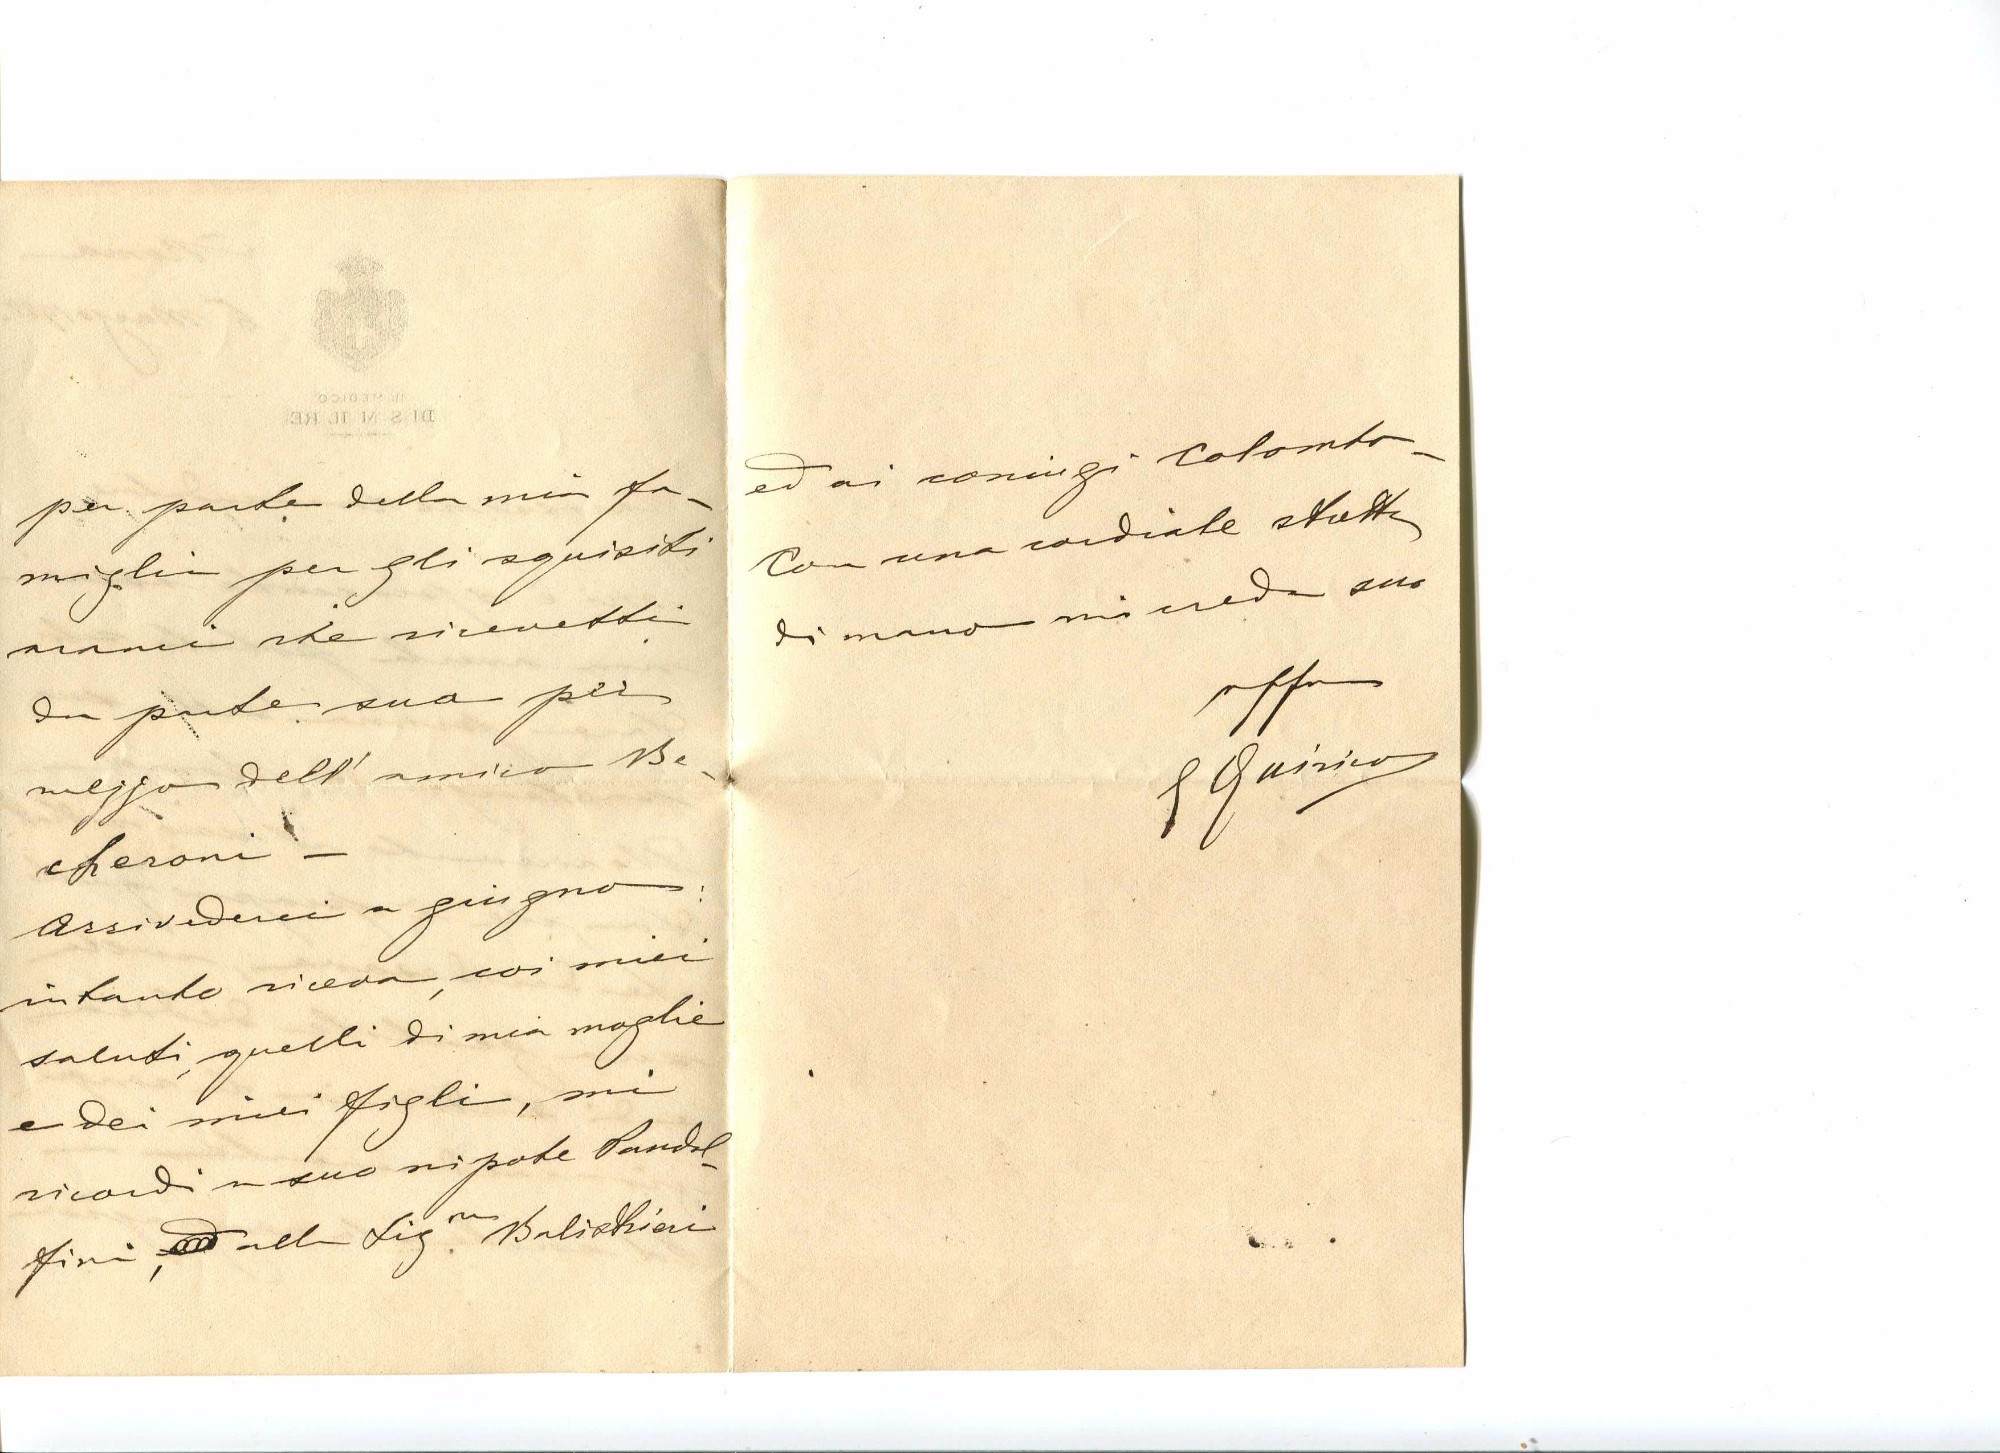 per parte della mia fa-
miglia per gli squisiti
aranci che ricevetti
da parte sua per
mezzo dell' amico Be-
cheroni -
Arrivederci a giugno:
intanto riceva, coi miei
saluti, quelli di mia moglie
e dei miei figli, mi
ricordi a suo nipote Pandol-
fini, alla Sig.ra Balistrieri
ed ai coniugi Colombo -
Con una cordiale stretta
di mano mi creda suo
affmo
G Quirico
IL MEDICO
DI S. M. IL RE
Roma